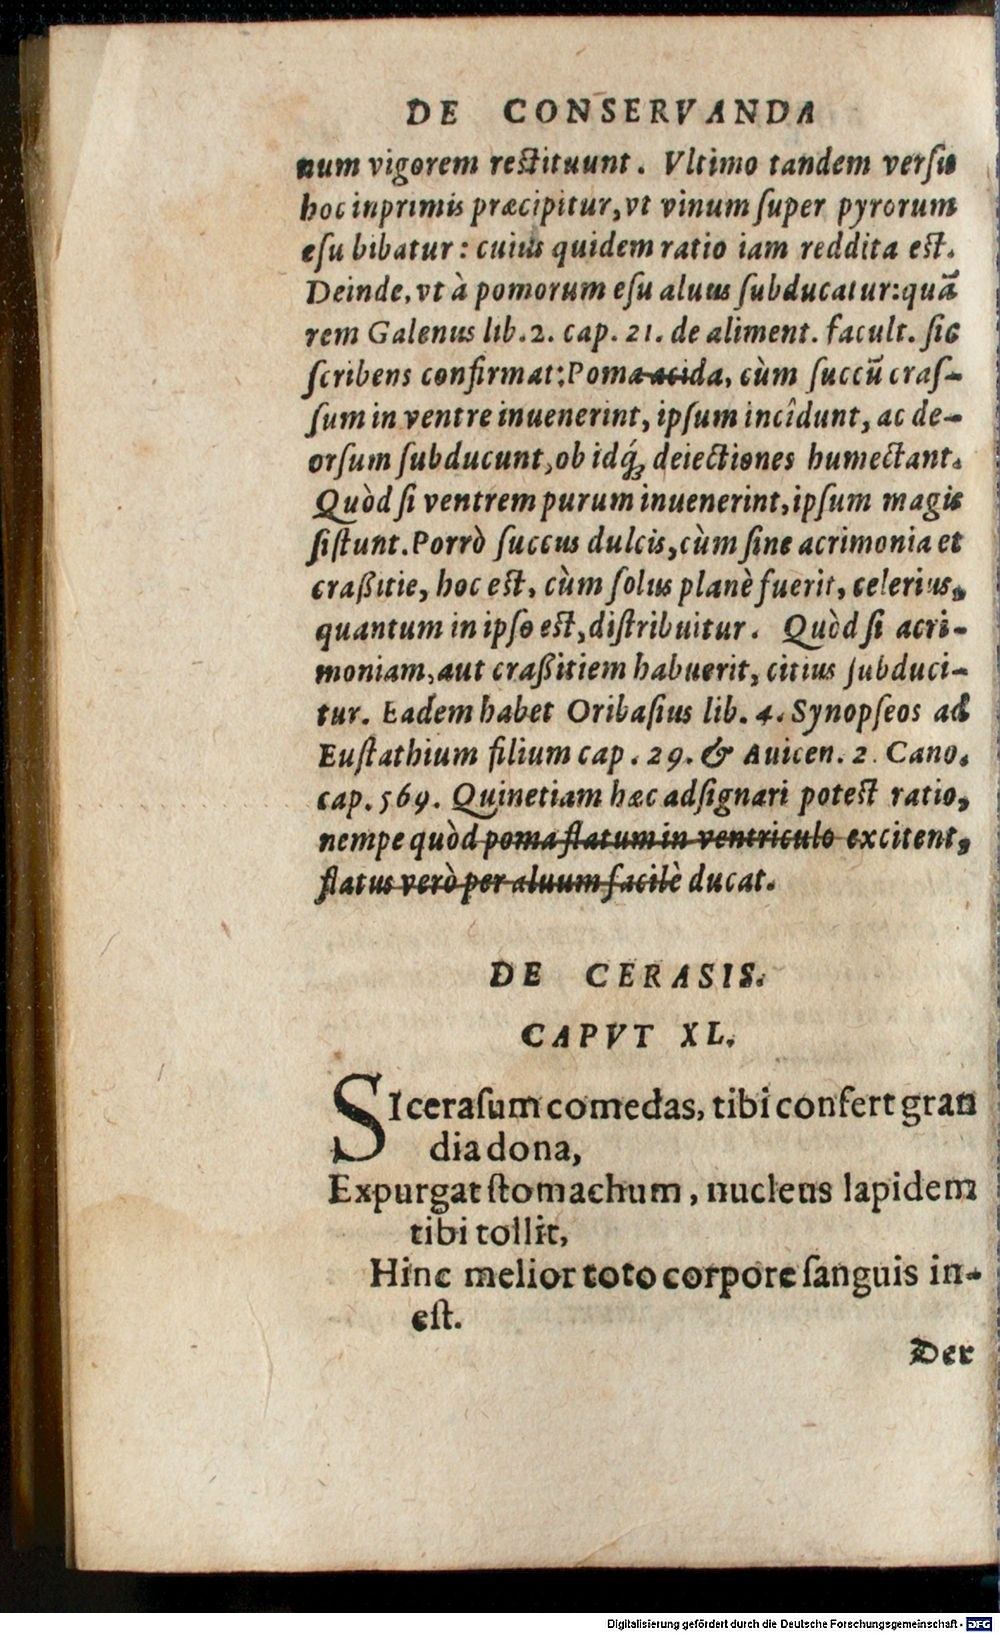 DE CONSERVANDA
num vigorem restituunt. Vltimo tandem versu
hoc inprimis præcipitur, vt vinum super pyrorum
esu bibatur: cuius quidem ratio iam reddita est.
Deinde, vt à pomorum esu aluus subducatur: quā
rem Galenus lib. 2. cap. 21. de aliment. facult. sic
scribens confirmat: Poma acida, cùm succū cras-
sum in ventre inuenerint, ipsum incîdunt, ac de-
orsum subducunt, ob idq́; deiectiones humectant.
Quòd si ventrem purum inuenerint, ipsum magis
sistunt. Porrò succus dulcis, cùm sine acrimonia et
craßitie, hoc est, cùm solus planè fuerit, celerius,
quantum in ipso est, distribuitur. Quòd si acri-
moniam, aut craßitiem habuerit, citius subduci-
tur. Eadem habet Oribasius lib. 4. Synopseos ad
Eustathium filium cap. 29. & Auicen. 2. Cano.
cap. 569. Quinetiam hæc adsignari potest ratio,
nempe quòd poma flatum in ventriculo excitent,
flatus verò per aluum facilè ducat.
DE CERASIS.
CAPVT XL.
SI cerasum comedas, tibi confert gran
dia dona,
Expurgat stomachum, nucleus lapidem
tibi tollit,
Hinc melior toto corpore sanguis in-
est.
Der
Digitalisierung gefördert durch die Deutsche Forschungsgemeinschaft - DFG